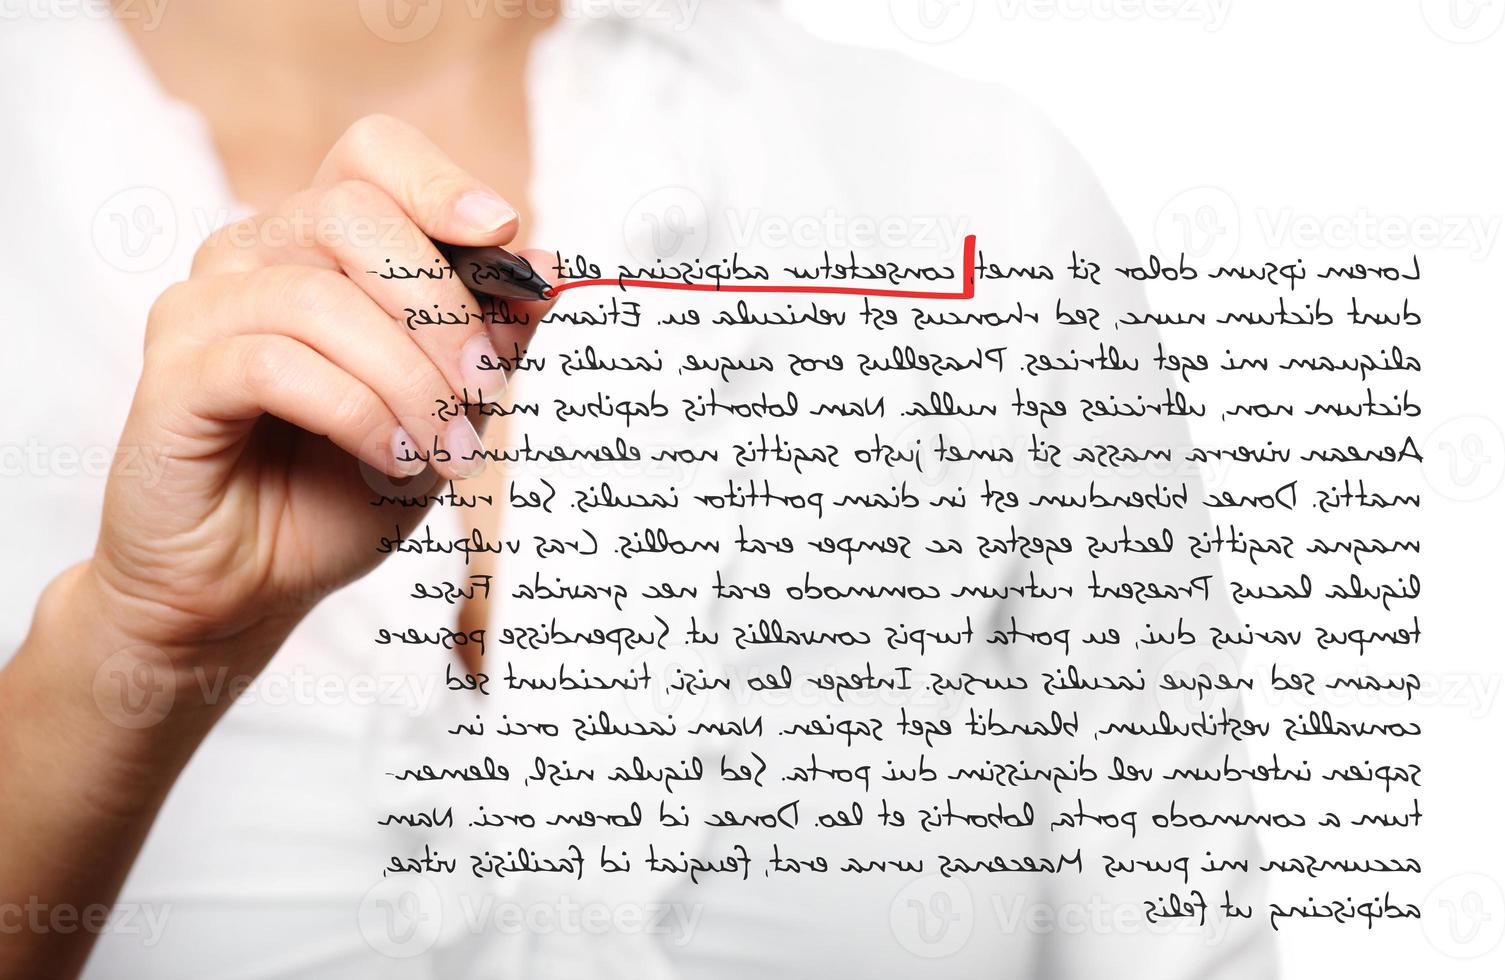 Lorem ipsum dolor sit amet, consectetur adipiscing elit cras tinci-
dunt dictum nunc, sed rhoncus est vehicula eu. Etiam ultricies
aliquam mi eget ultrices. Phasellus eros augue, iaculis vitae
dictum non, ultricies eget nulla. Nam lobortis dapibus mattis.
Aenean viverra massa sit amet justo sagittis non elementum dui
mattis. Donec bibendum est in diam porttitor iaculis. Sed rutrum
magna sagittis lectus egestas ac semper erat mollis. Cras vulputate
ligula lacus Praesent rutrum commodo erat nec gravida Fusce
tempus varius dui, eu porta turpis convallis ut. Suspendisse posuere
quam sed neque iaculis cursus. Integer leo nisi, tincidunt sed
convallis vestibulum, blandit eget sapien. Nam iaculis orci in
sapien interdum vel dignissim dui porta. Sed ligula nisl, elemen-
tum a commodo porta, lobortis et leo. Donec id lorem orci. Nam
accumsan mi purus Maecenas urna erat, feugiat id facilisis vitae,
adipiscing ut felis
Vecteezy